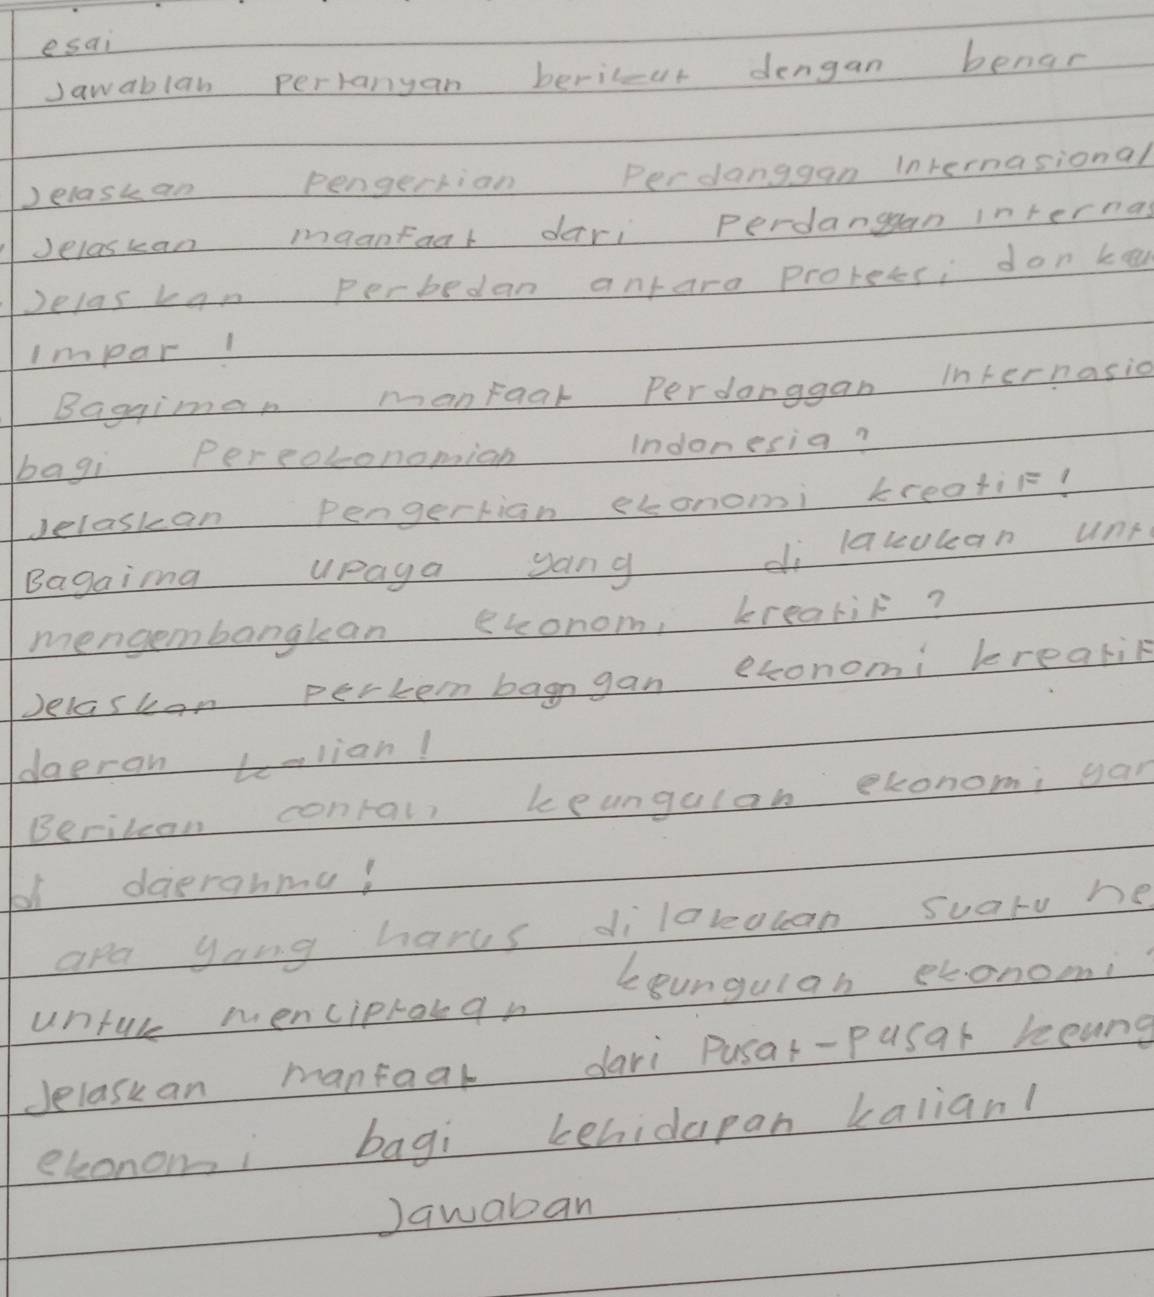 esai
Jawablah pertanyan berikut dengan benar
Jelaskan pengertian Perdanggan Internasional
Jelaskan maanfaat dari perdangan interna
Jelaskan perbedan antara proteksi dan
impar !
Bagaiman manfaat Perdanggan Internasio
bagi Pereokonomian Indonesia ?
Jelaskan pengertian ekonomi kreatif !
Bagaima upaya yang di lakukan unt
mengembangkan ekonomi kreatif ?
Jelaskan perkembangan ekonomi kreatif
daerah kalian !
Berikan contoh keungulan ekonomi yan
di daerahmu !
apa yang harus di lakukan suatu ne
untuk menciptakan keungulan ekonomi
Jelaskan manfaat dari Pusat-pusat keung
ekonomi bagi kehidupan kalian !
Jawaban